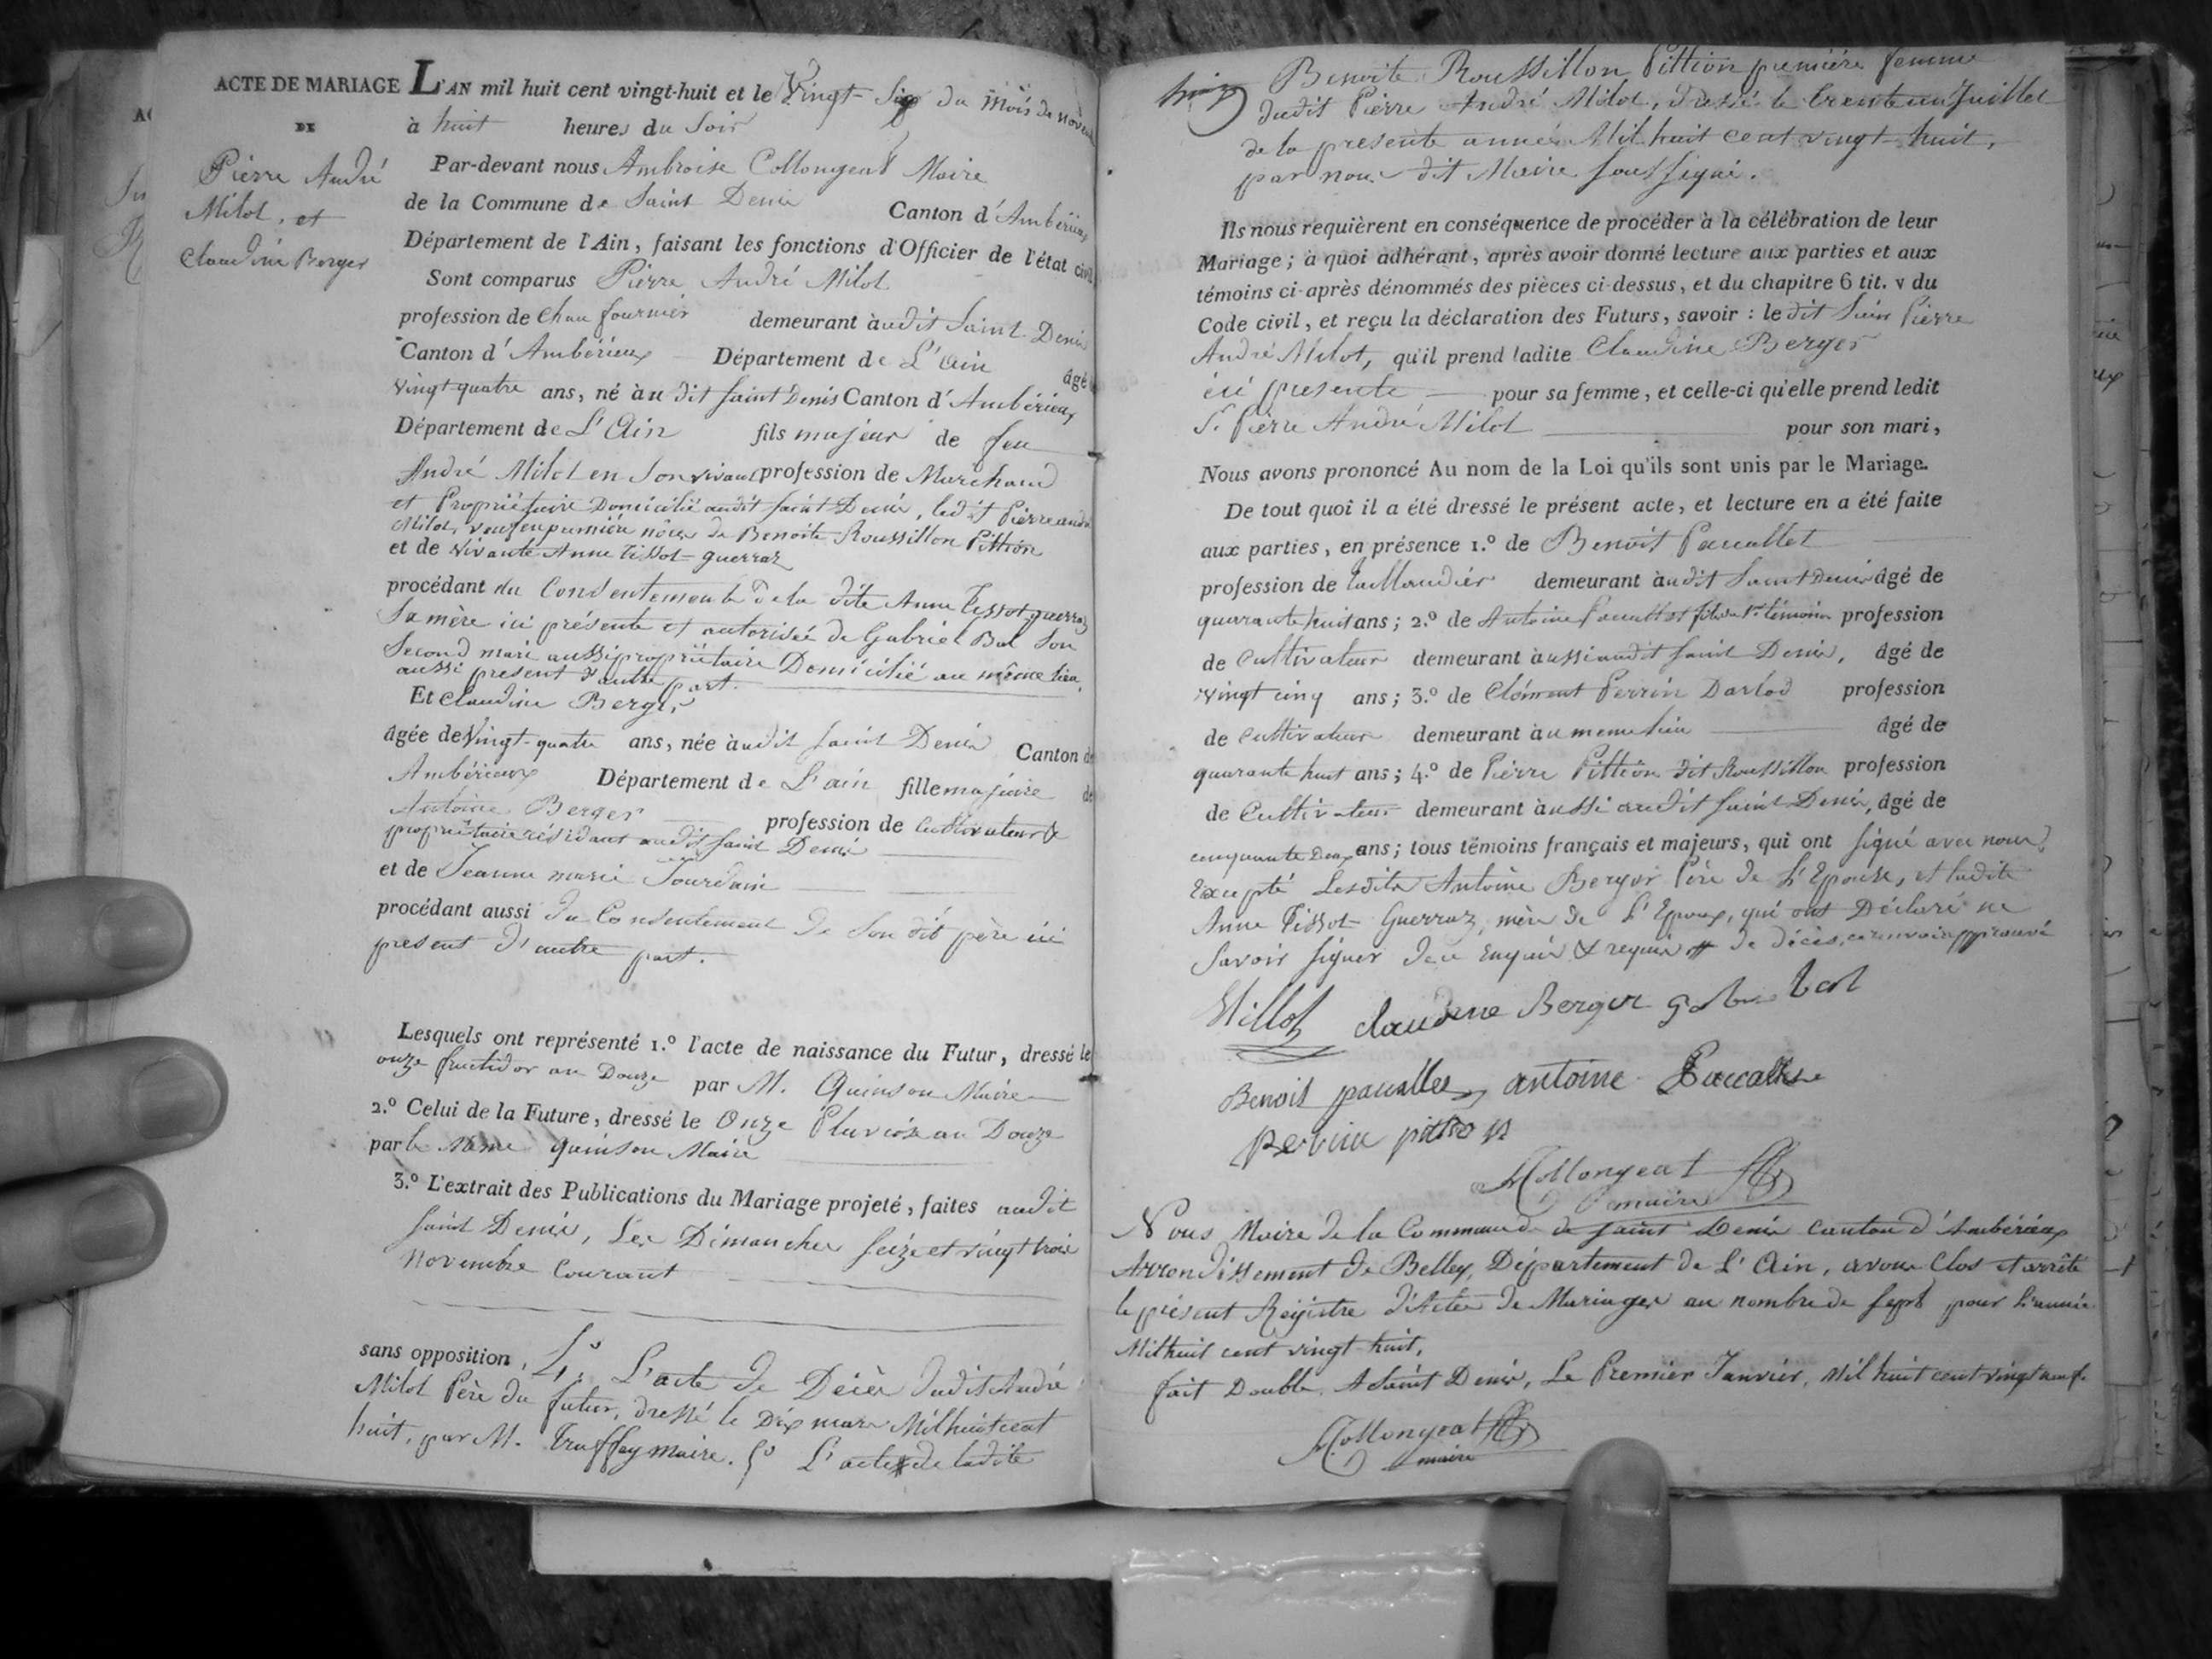 ACTE DE MARIAGE
DE
Pierre André
Milot, et
Claudine Berger
L'AN mil huit cent vingt-huit et le Vingt Six du mois de nov
à huit heures du Soir
Par-devant nous Ambroise Collongeat Maire
de la Commune de Saint Denis Canton d'Ambérieux
Département de l'Ain, faisant les fonctions d'Officier de l'état civil
Sont comparus Pierre André Milot
profession de Chau fournier demeurant audit Saint Denis
Canton d'Ambérieux Département de L'ain âgé
vingt quatre ans, né au dit Saint Denis Canton d'Ambérieux
Département de L'Ain fils majeur de feu
André Milot en Son vivant profession de Marchand
et Propriétaire Domicilié audit Saint Denis, ledit Pierre andré
Milot, veuf en premiére nôces de Benoite Roussillon Pittion
et de vivante Anne Tissot-guerraz
procédant du Consentement de la dite Anne Tissot guerraz
Sa mère ici présente et autorisée de Gabriel Bal Son
Second mari aussi propriétaire Domicilié au même lieu,
aussi present d'autre part.
Et Claudine Berger
âgée de Vingt-quatre ans, née audit Saint Denis Canton de
Ambérieux Département de L'ain fille majeure de
Antoine Berger profession de Cultivateur &
propriétaire résidant audit Saint Denis
et de Jeanne marie Jourdain
procédant aussi du Consentement de Son dit père ici
present d'autre part.
Lesquels ont représenté 1.º l'acte de naissance du Futur, dressé le
onze fructidor an Douze par M. Quinson Maire
2.º Celui de la Future, dressé le Onze Pluviôse an Douze
par le Même Quinson Maire
3.º L'extrait des Publications du Mariage projeté, faites audit
Saint Denis, Les Dimanches Seize et vingt trois
Novembre Courant
sans opposition, 4.º L'acte de Décès dudit André
Milot Père du futur, dressé le Dix mars Mil huit cent
huit, par M. Truffey maire. 5º L'acte de ladite
Benoite Roussillon Pittion première femme
dudit Pierre André Milot, dressé le trente un Juillet
de la presente année Mil huit cent vingt-huit,
par nous dit Maire Soussigné.
Ils nous requièrent en conséquence de procéder à la célébration de leur
Mariage; à quoi adhérant, après avoir donné lecture aux parties et aux
témoins ci-après dénommés des pièces ci-dessus, et du chapitre 6 tit. v du
Code civil, et reçu la déclaration des Futurs, savoir : le dit Pierre
André Milot, qu'il prend ladite Claudine Berger
ici presente pour sa femme, et celle-ci qu'elle prend ledit
S. Pierre André Milot pour son mari,
Nous avons prononcé Au nom de la Loi qu'ils sont unis par le Mariage.
De tout quoi il a été dressé le présent acte, et lecture en a été faite
aux parties, en présence 1.º de Benoit Pacallet
profession de taillandier demeurant audit Saint Denis âgé de
quarante huit ans; 2.º de Antoine Pacallet fils du 1er témoin profession
de Cultivateur demeurant aussi audit Saint Denis, âgé de
vingt cinq ans; 3.º de Clément Perrin Darlod profession
de Cultivateur demeurant au meme lieu âgé de
quarante huit ans; 4.º de Pierre Pittion dit Roussillon profession
de Cultivateur demeurant aussi audit Saint Denis, âgé de
cinquante Deux ans; tous témoins français et majeurs, qui ont signé avec nous,
Excepté Lesdits Antoine Berger Père de L'Epouse, et ladite
Anne Tissot-Guerraz, mère de L'Epoux, qui ont Déclaré ne
Savoir signer de ce Enquis & requis # de décès, ce renvoi approuvé
Millot Claudine Berger bal
Benoit pacallet antoine Paccallet
Perrin pittion
Collongeat
maire
Nous Maire de la Commune de Saint Denis Canton d'Ambérieux
Arrondissement de Belley, Département de L'Ain, avons Clos et arrêté
le présent Régistre d'Actes de Mariages au nombre de Sept pour l'année
Mil huit cent vingt-huit,
fait Double A Saint Denis, Le Premier Janvier, Mil huit cent vingt neuf.
Collongeat
maire